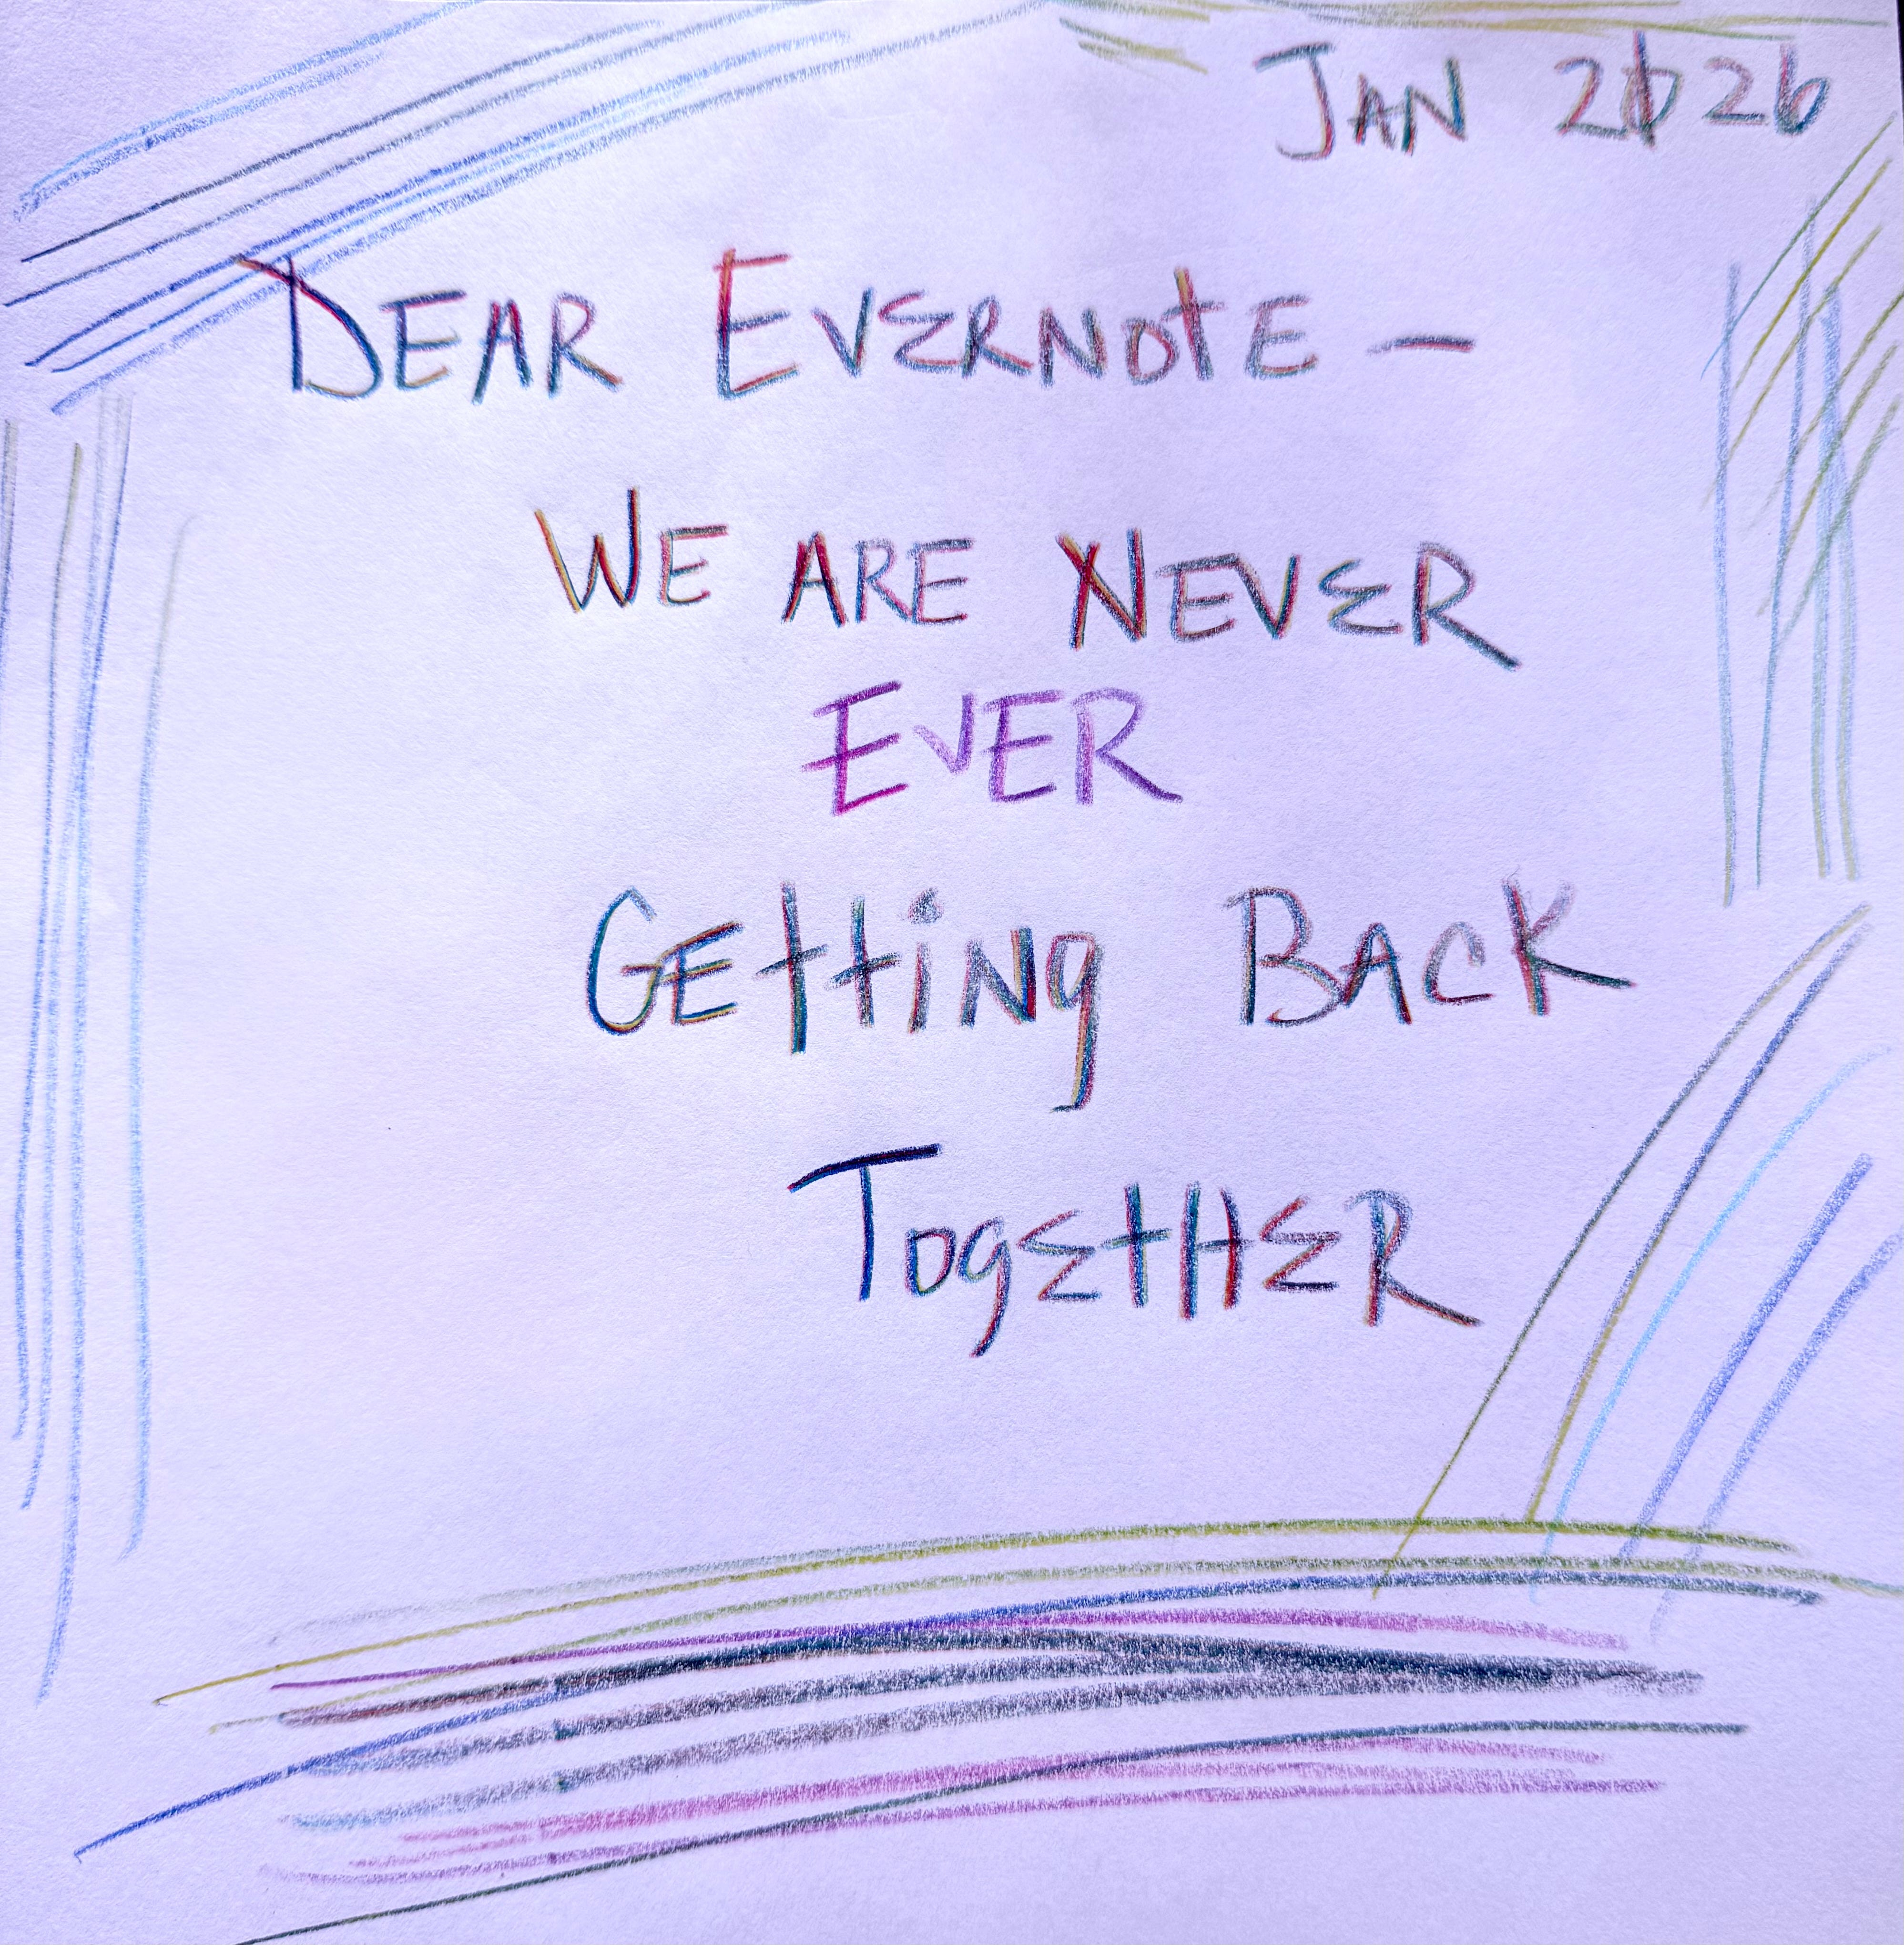 JAN 2026
DEAR EVERNOTE –
WE ARE NEVER
EVER
GETTiNg BACK
TogETHER